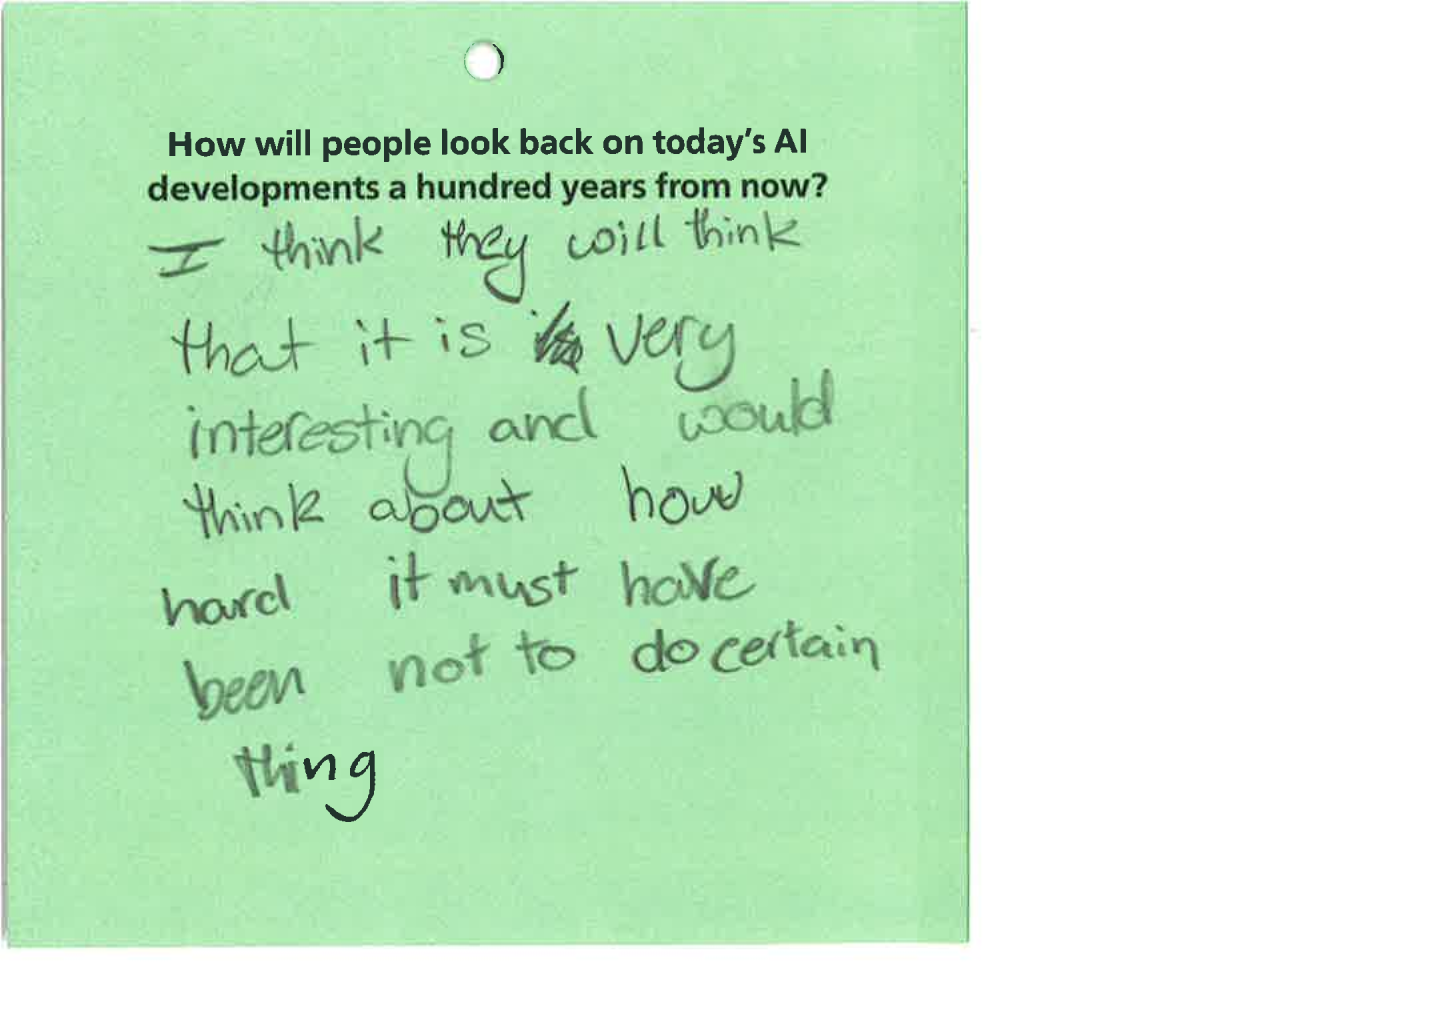 How will people look back on today's AI
developments a hundred years from now?
I think they will think
that it is very
interesting and would
think about how
hard it must have
been not to do certain
thing